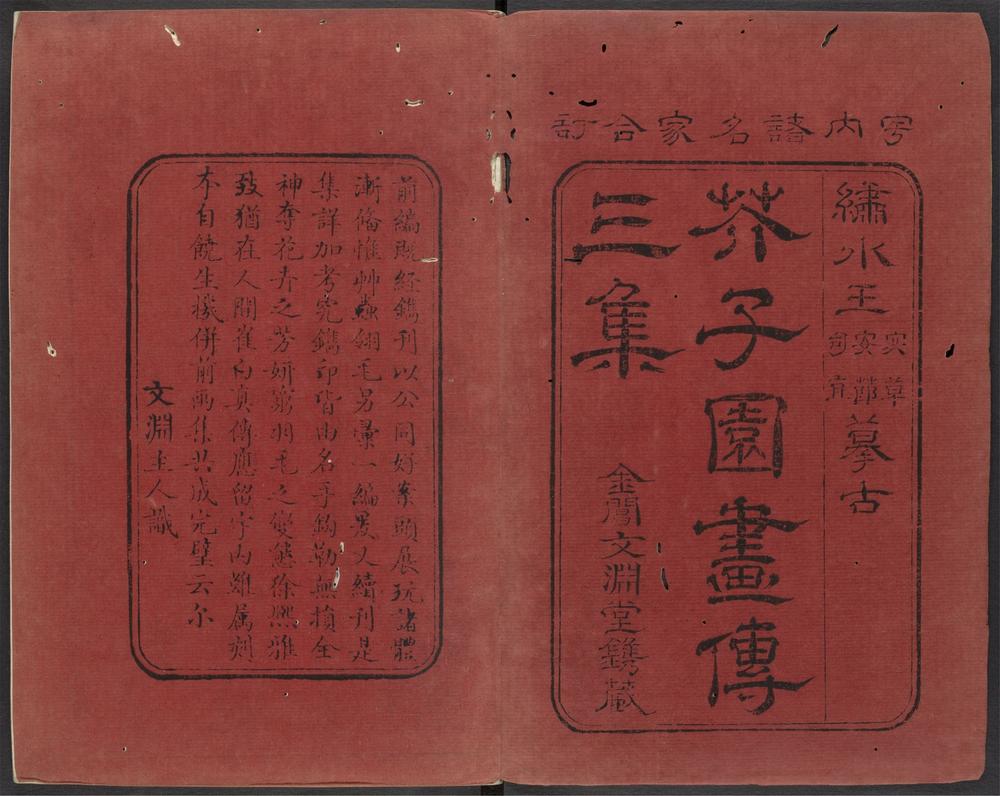 宇內諸名家合訂
繡水王宓草 安節 司直摹古
芥子園畫傳
三集
金閶文淵堂鐫藏
前編既經鐫刊以公同好案頭展玩諸體
漸備惟艸蟲翎毛另彙一編爰又續刊是
集詳加考究鐫印皆由名手鈎勒無損全
神奪花卉之芳妍窮羽毛之變態徐熙雅
致猶在人間崔白真傳應留宇內雖属刻
本自饒生機併前兩集共成完璧云尔
文淵主人識